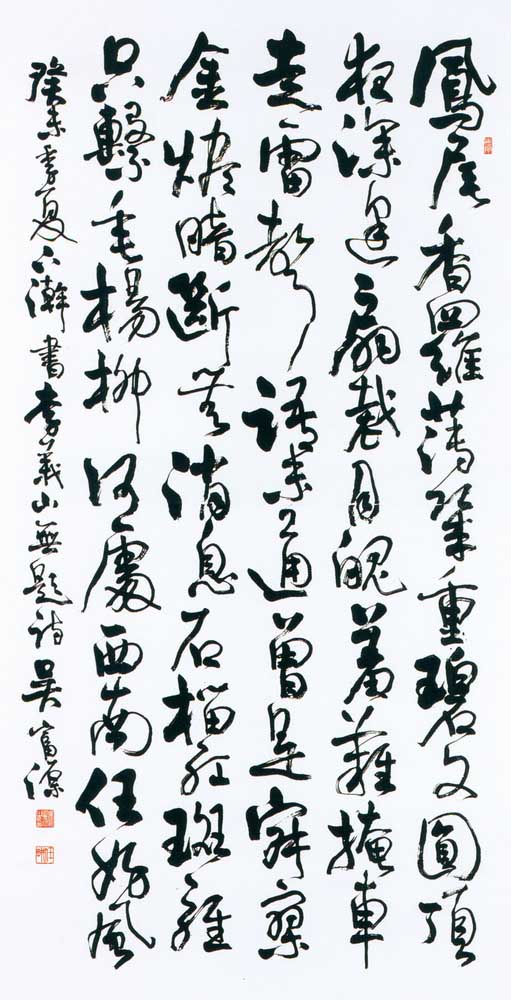 鳳尾香羅薄幾重碧文圓頂
夜深縫扇裁月魄羞難掩車
走雷聲語未通曾是寂寥
金燼暗斷無消息石榴紅斑騅
只繫垂楊柳何處西南任好風
癸未季夏下瀚書李義山無題詩吳富源